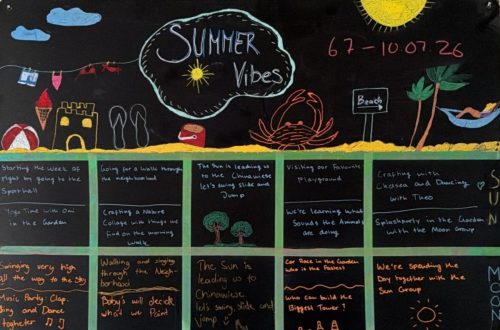 SUMMER
Vibes
67-10 07.26
Beach
Starting the week of
right by going to the
Sporthall
Yoga Time with Omi
in the Garden
Going for a walk through
the neighborhood
Crafting a Nature
Collage with things we
find on the morning
walk
The Sun is leading us
to the Chinawiese
let's swing, slide and
Jump
Visiting our Favourite
Playground
We're learning what
Sounds the Animals
are doing
Crafting with
Chelsea and Dancing
with Theo
Splashparty in the Garden
with the Moon Group
SUN
Swinging very high
all the way to the Sky
Music Party Clap,
Sing and Dance
together
Walking and singing
through the Neigh-
borhood
Baby's will decide
what we Paint
The Sun is
leading us to
Chinawiese
let's swing, slide
and jump
Car Race in the Garden
who is the Fastest
who can build the
Biggest Tower?
We're spending the
Day together with the
Sun Group
MOON